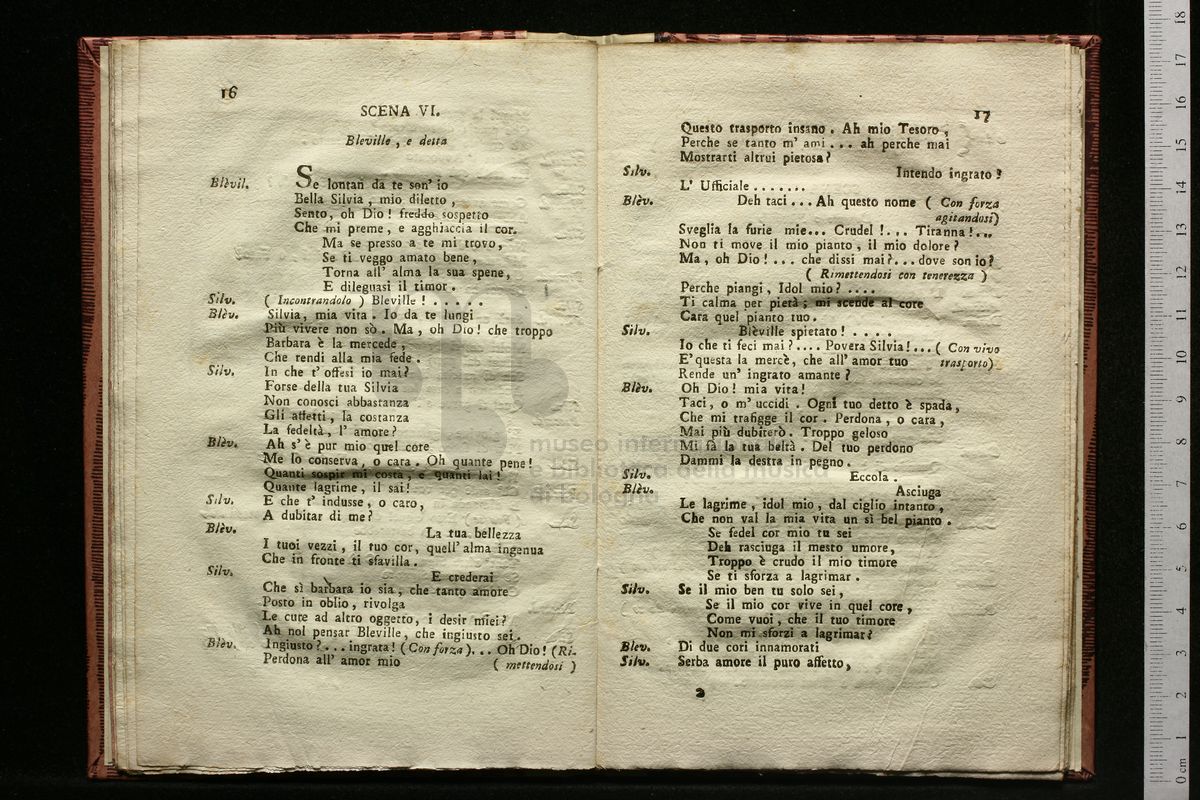 16
SCENA VI.
Bleville, e detta
Blèvil. Se lontan da te son' io
Bella Silvia, mio diletto,
Sento, oh Dio! freddo sospetto
Che mi preme, e agghiaccia il cor.
Ma se presso a te mi trovo,
Se ti veggo amato bene,
Torna all' alma la sua spene,
E dileguasi il timor.
Silv. ( Incontrandolo ) Bleville! . . . . .
Blèv. Silvia, mia vita. Io da te lungi
Più vivere non sò. Ma, oh Dio! che troppo
Barbara è la mercede,
Che rendi alla mia fede.
Silv. In che t' offesi io mai?
Forse della tua Silvia
Non conosci abbastanza
Gli affetti, la costanza
La fedeltà, l' amore?
Blèv. Ah s' è pur mio quel core
Me lo conserva, o cara. Oh quante pene!
Quanti sospir mi costa, e quanti lai!
Quante lagrime, il sai!
Silv. E che t' indusse, o caro,
A dubitar di me?
Blèv. La tua bellezza
I tuoi vezzi, il tuo cor, quell' alma ingenua
Che in fronte ti sfavilla.
Silv. E crederai
Che sì barbara io sia, che tanto amore
Posto in oblio, rivolga
Le cure ad altro oggetto, i desir miei?
Ah nol pensar Bleville, che ingiusto sei.
Blèv. Ingiusto?... ingrata! (Con forza)... Oh Dio! (Ri-
Perdona all' amor mio ( mettendosi )
17
Questo trasporto insano. Ah mio Tesoro,
Perche se tanto m' ami... ah perche mai
Mostrarti altrui pietosa?
Silv. Intendo ingrato?
L' Ufficiale . . . . . . .
Blèv. Deh taci... Ah questo nome ( Con forza
agitandosi)
Sveglia la furie mie... Crudel!... Tiranna!...
Non ti move il mio pianto, il mio dolore?
Ma, oh Dio! ... che dissi mai?... dove son io?
( Rimettendosi con tenerezza )
Perche piangi, Idol mio? ....
Ti calma per pietà; mi scende al core
Cara quel pianto tuo.
Silv. Blèville spietato! . . . .
Io che ti feci mai?.... Povera Silvia!...( Con vivo
E' questa la mercè, che all' amor tuo trasporto)
Rende un' ingrato amante?
Blèv. Oh Dio! mia vita!
Taci, o m' uccidi. Ogni tuo detto è spada,
Che mi trafigge il cor. Perdona, o cara,
Mai più dubiterò. Troppo geloso
Mi fà la tua beltà. Del tuo perdono
Dammi la destra in pegno.
Silv. Eccola.
Blèv. Asciuga
Le lagrime, idol mio, dal ciglio intanto,
Che non val la mia vita un sì bel pianto.
Se fedel cor mio tu sei
Deh rasciuga il mesto umore,
Troppo è crudo il mio timore
Se ti sforza a lagrimar.
Silv. Se il mio ben tu solo sei,
Se il mio cor vive in quel core,
Come vuoi, che il tuo timore
Non mi sforzi a lagrimar?
Blev. Di due cori innamorati
Silv. Serba amore il puro affetto,
a
museo internazionale
e biblioteca della musica
di bologna
0 cm 1 2 3 4 5 6 7 8 9 10 11 12 13 14 15 16 17 18